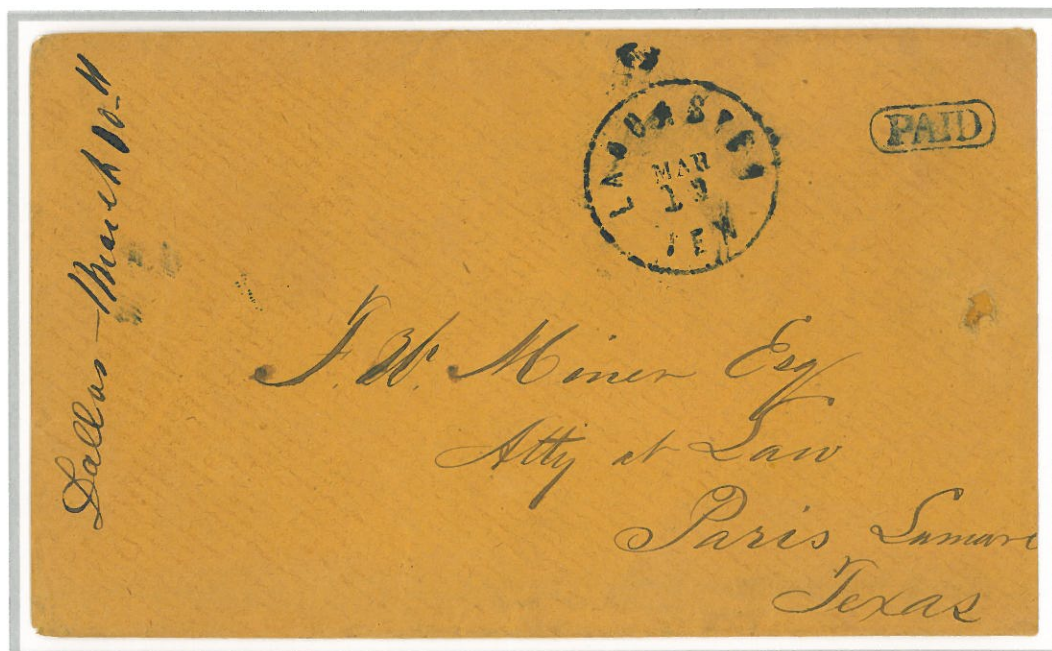 Dallas — March 10
LANCASTER
MAR
TEX
PAID
F. W. Miner Esq
Atty at Law
Paris Lamar
Texas